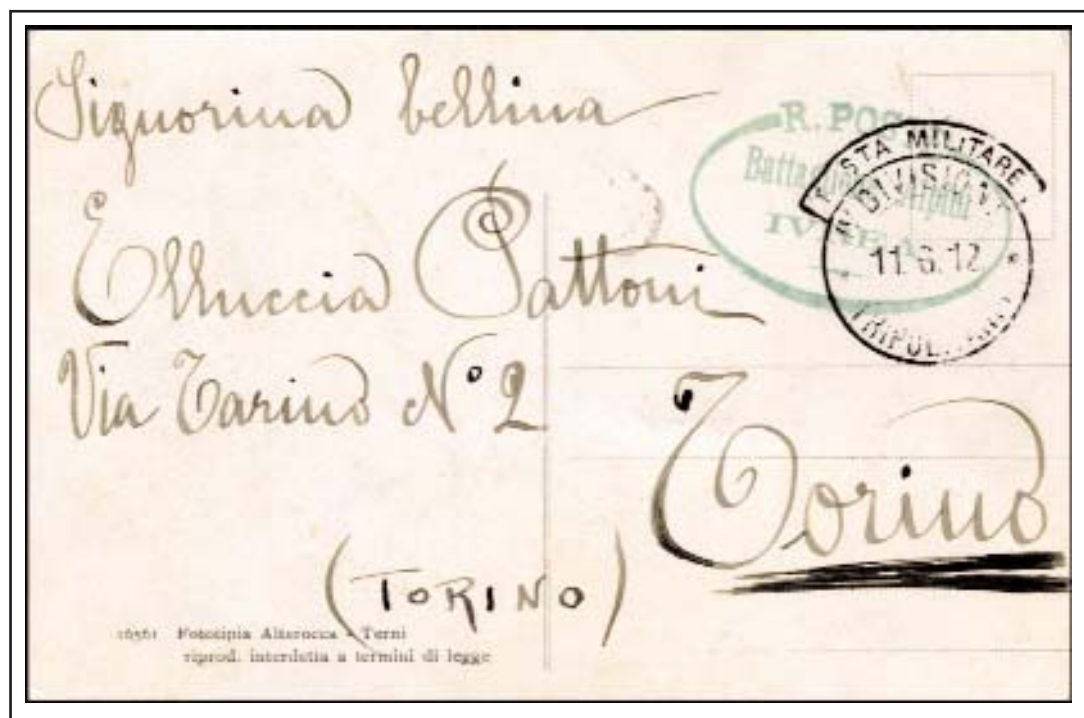 Signorina bellina
Elluccia Pattoni
Via Tarino N° 2
Torino
(TORINO)
R. POS
Batta
POSTA MILITARE
DIVISIONE
11.6.12
TRIPOL
16561 Fototipia Alterocca - Terni
riprod. interdetta a termini di legge